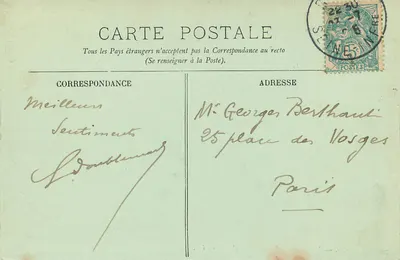 CARTE POSTALE
Tous les Pays étrangers n'acceptent pas la Correspondance au recto
(Se renseigner à la Poste).
CORRESPONDANCE
ADRESSE
Meilleurs
Sentiments
Mr Georges Berthault
25 place des Vosges
Paris